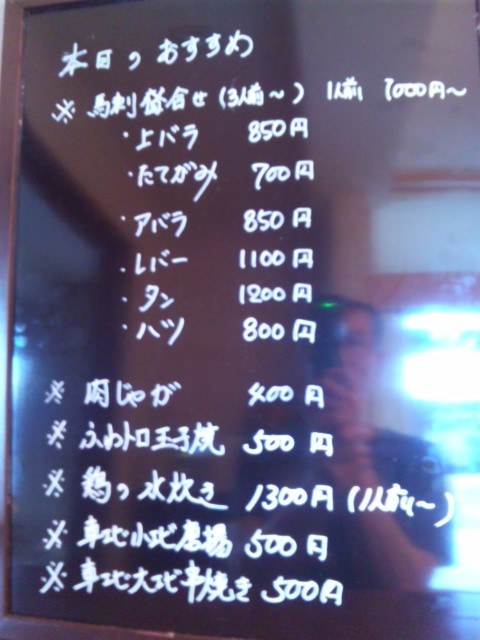 本日のおすすめ
※ 馬刺盛合せ (3人前〜) 1人前 1000円〜
・上バラ 850円
・たてがみ 700円
・アバラ 850円
・レバー 1100円
・タン 1200円
・ハツ 800円
※ 肉じゃが 400円
※ ふわトロ玉子焼 500円
※ 鶏の水炊き 1300円 (1人前〜)
※ 小エビ 500円
※ 大エビ串焼き 500円